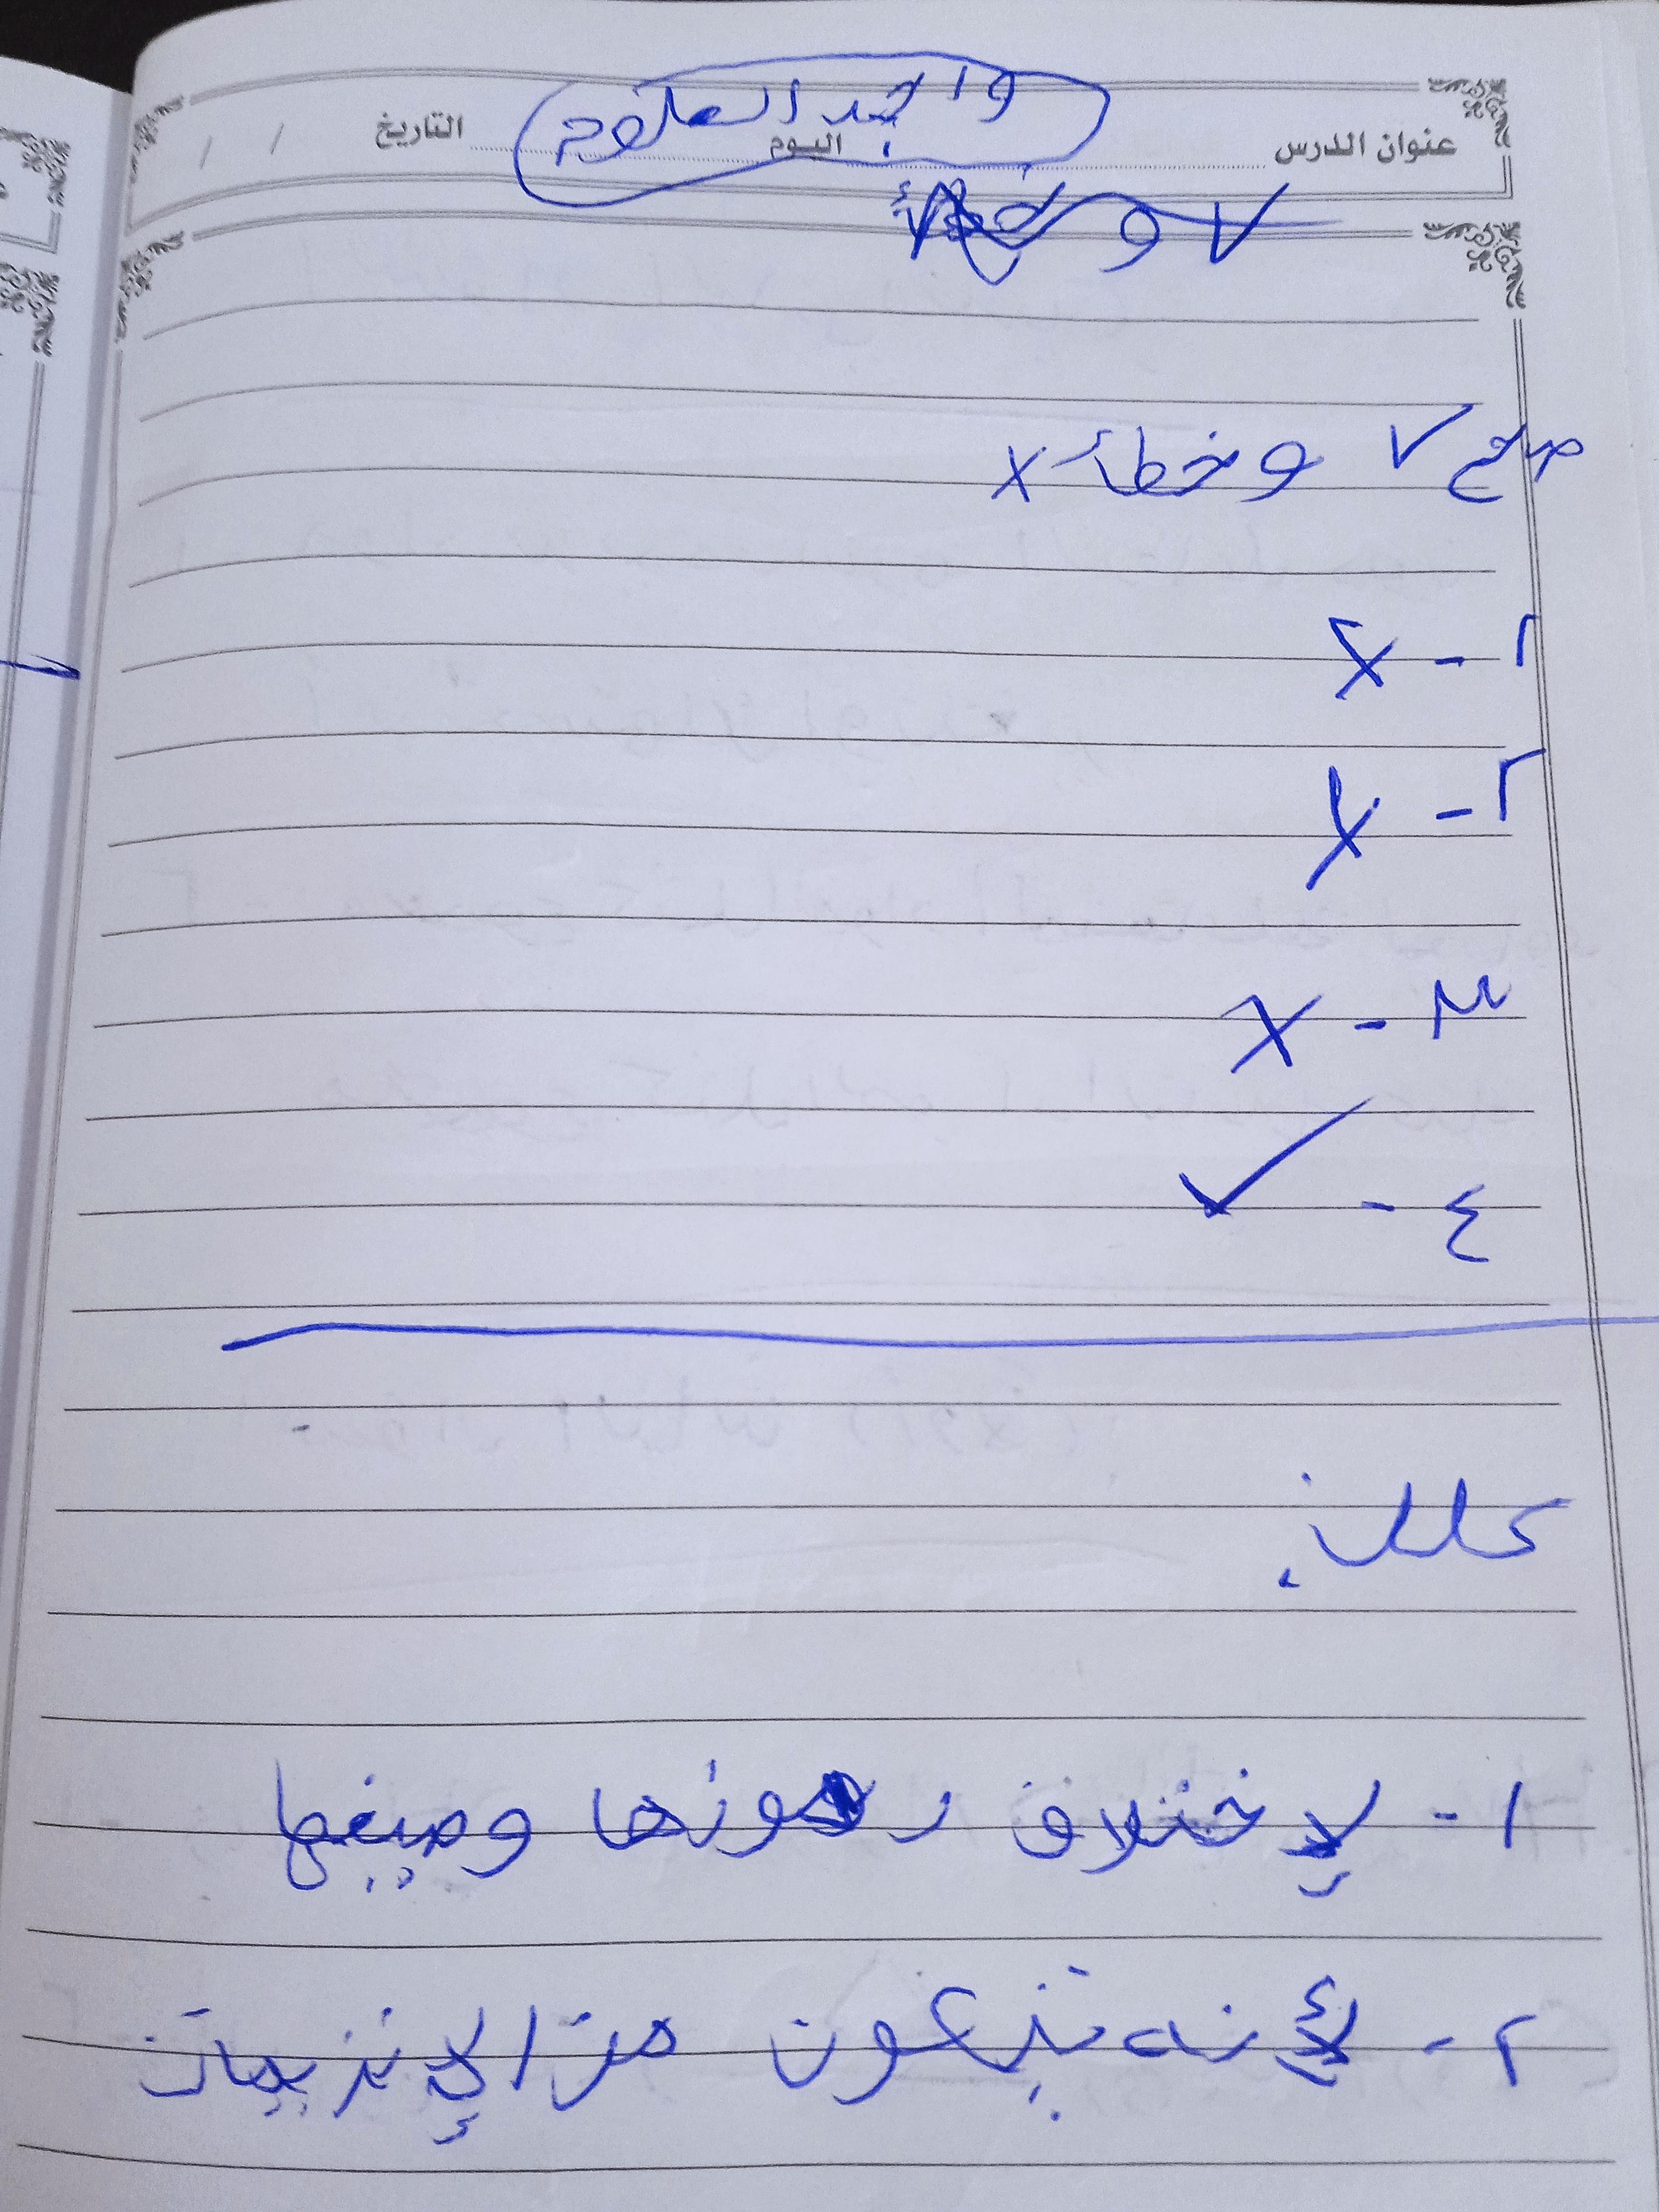 عنوان الدرس اليوم التاريخ / /
واجبد العلوم
✓ و
صح ✓ وخطأ X
١ - X
٢ - X
٣ - X
٤ - ✓
علل:
١ - لإختلاف رموزها وصيغها
٢ - لأنه يتكون من الإنزيمات